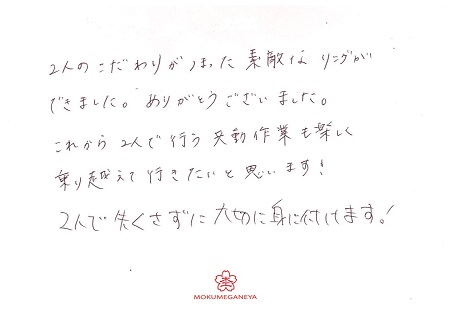 2人のこだわりがつまった素敵なリングが
できました。ありがとうございました。
これから2人で行う共動作業も楽しく
乗り越えて行きたいと思います！
2人で失くさずに大切に身に付けます！
MOKUMEGANEYA